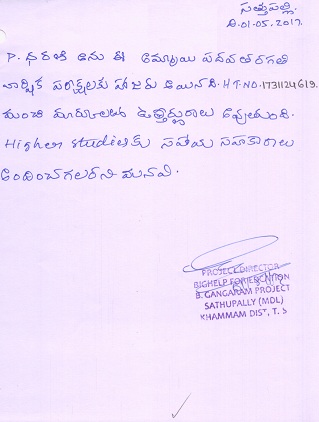 సత్తుపల్లి.
ది.01-05.2017.
P. ధరణి అను ఈ అమ్మాయి పదవ తరగతి
వార్షిక పరీక్షలకు హాజరు అయినది. H.T.NO. 1731124619.
మంచి మార్కులతో ఉత్తీర్ణురాలు అవుతుంది.
Higher studies కు సహాయ సహకారాలు
అందించగలరని మనవి.
PROJECT DIRECTOR
BIGHELP FOR EDUCATION
B. GANGARAM PROJECT
SATHUPALLY (MDL)
KHAMMAM DIST, T. S